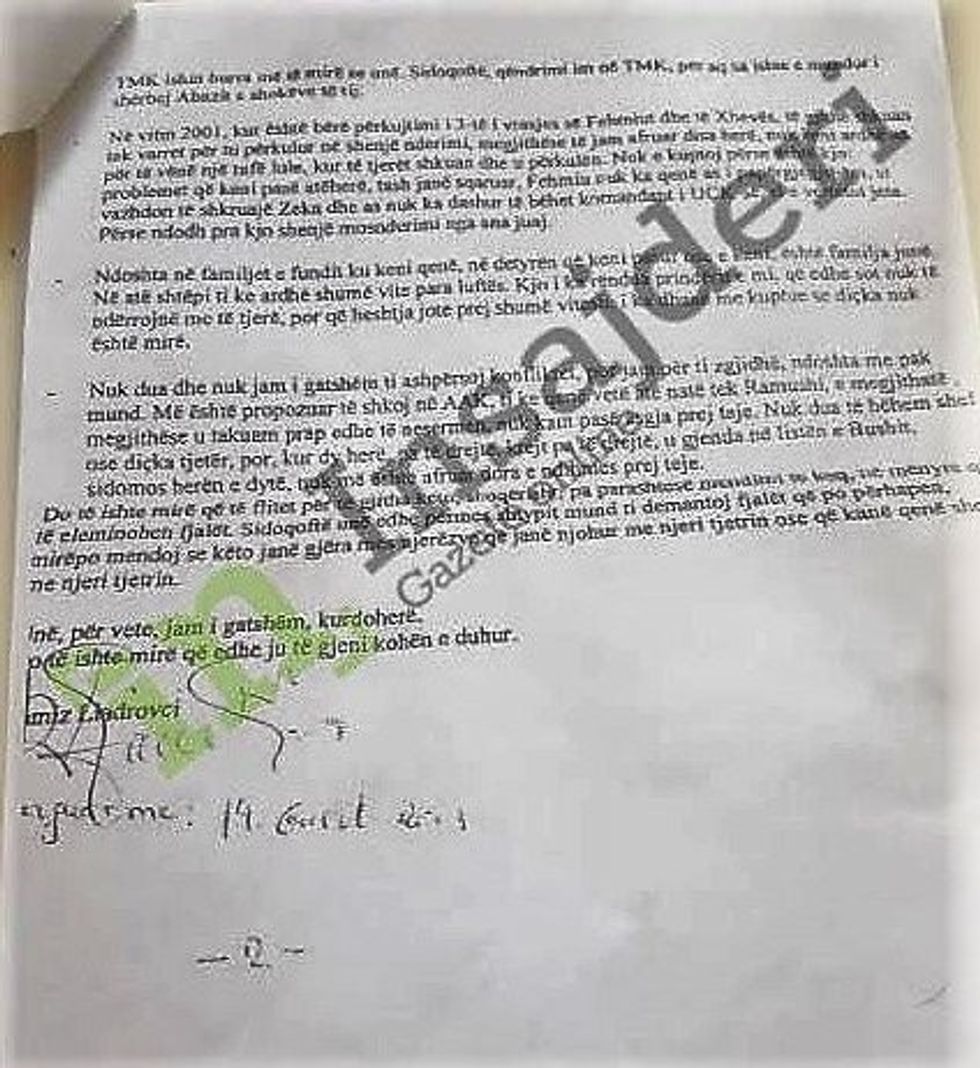 TMK ishin burra më të mirë se unë. Sidoqoftë, qëndrimi im në TMK, për aq sa ishte e mundur i
shërbej Abazit e shokëve të tij.
Në vitin 2001, kur është bërë përkujtimi i 3-të i vrasjes së Fehmisë dhe të Xhevës, të gjithë shkuan
tek varret për tu përkulur në shenjë nderimi, megjithëse të jam afruar disa herë, nuk keni ardhë
për të vënë një tufë lule, kur të tjerët shkuan dhe u përkulën. Nuk e kuptoj përse
problemet që kani pasë atëherë, tash janë sqaruar, Fehmiu nuk ka qenë as i
vazhdon të shkruajë Zeka dhe as nuk ka dashur të bëhet komandant i UÇK
Përse ndodh pra kjo shenjë mosnderimi nga ana juaj.
- Ndoshta në familjet e fundit ku keni qenë, në detyrën që keni është familja jonë.
Në atë shtëpi ti ke ardhë shumë vite para luftës. Kjo i ka rënduar prindërit e mi, që edhe sot nuk të
ndërrojnë me të tjerë, por që heshtja jote prej shumë vitesh i ka dhanë me kuptue se diçka nuk
është mirë.
- Nuk dua dhe nuk jam i gatshëm ti ashpërsoj konfliktet, por jam për ti zgjidhë, ndoshta me pak
mund. Më është propozuar të shkoj në AAK, ti ke qenë vetë atë natë tek Ramushi, e megjithatë
megjithëse u takuam prap edhe të nesërmen, nuk kam pasë zgja prej teje. Nuk dua të bëhem shef
ose diçka tjetër, por, kur dy herë, pa të drejtë, krejt pa të drejtë, u gjenda në listën e Bushit,
sidomos herën e dytë, nuk më është afruar dora e ndihmës prej teje.
Do të ishte mirë që të flitet për të gjitha këto, shoqërisht, pa parashtesë në mënyrë
të eleminohen fjalët. Sidoqoftë unë edhe përmes shtypit mund ti demantoj fjalët që po përhapen,
mirëpo mendoj se këto janë gjëra mes njerëzve që janë njohur me njeri tjetrin ose që kanë qenë
ne njeri tjetrin.
Inë, për vete, jam i gatshëm, kurdoherë,
ishte mirë që edhe ju të gjeni kohën e duhur.
Lladrovci
14. Gusht
- 2 -
Insajderi
Gazeta Online